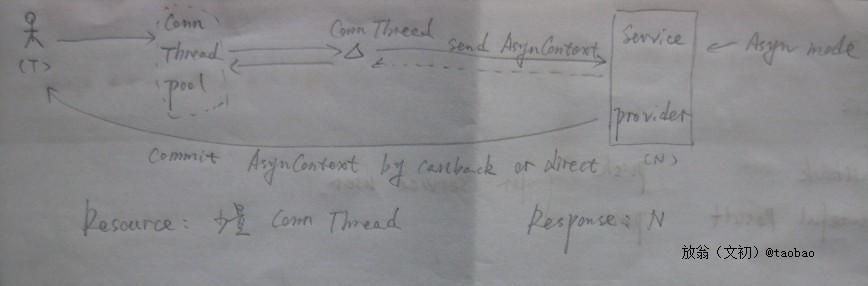 Conn
Thread
pool
(T)
Conn Thread
send AsynContext
Service
provider
(N)
Asyn mode
Commit AsynContext by callback or direct
Resource: 少量 Conn Thread
Response: N
放翁（文初）@taobao